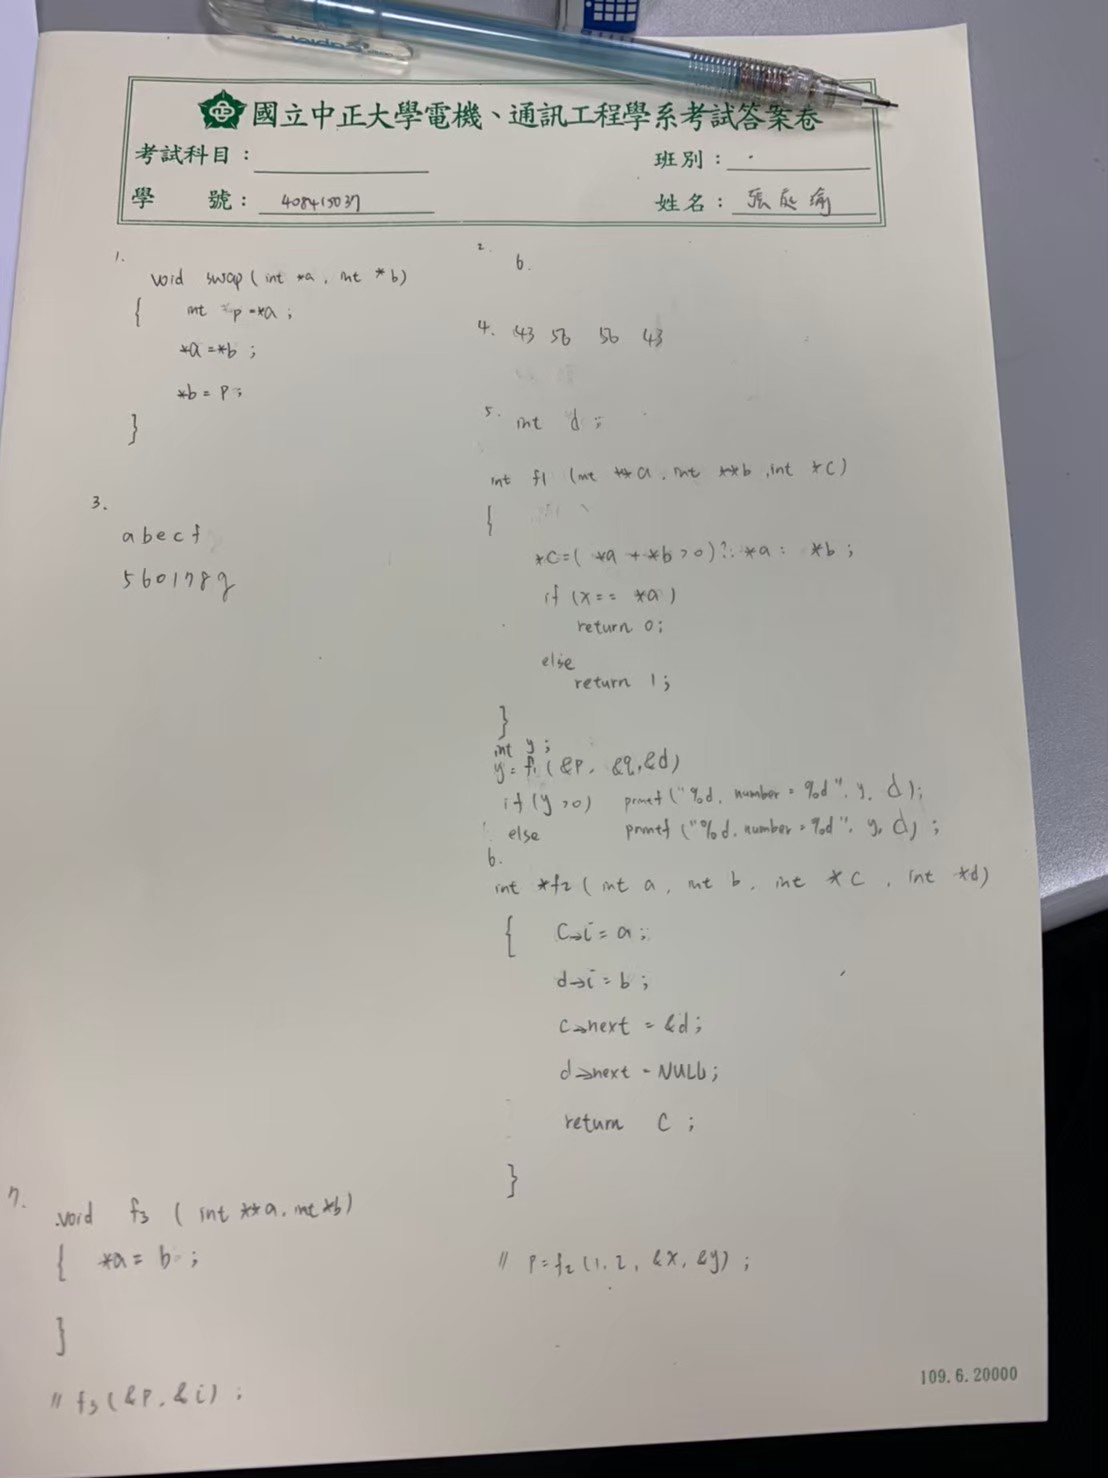 國立中正大學電機、通訊工程學系考試答案卷
考試科目：
班別：
學 號： 408415037
姓名： 張 瑜
1.
void swap ( int *a , int * b )
{ int p = *a ;
*a = *b ;
*b = p ;
}
2.
6.
3.
abecf
560178g
4. 43 56 56 43
5.
int d ;
int f1 ( int **a , int **b , int *c )
{
*c = ( *a + *b > 0 ) ? : *a : *b ;
if ( x == *a )
return 0 ;
else
return 1 ;
}
int y ;
y = f1 ( &p , &q , &d )
if ( y > 0 ) printf ( "%d, number = %d", y, d ) ;
else printf ( "%d, number = %d", y, d ) ;
6.
int *f2 ( int a , int b , int *c , int *d )
{ c→i = a ;
d→i = b ;
c→next = &d ;
d→next = NULL ;
return c ;
}
// p = f2 ( 1, 2, &x, &y ) ;
7.
void f3 ( int **a , int *b )
{ *a = b ;
}
// f3 ( &p , &i ) ;
109.6.20000